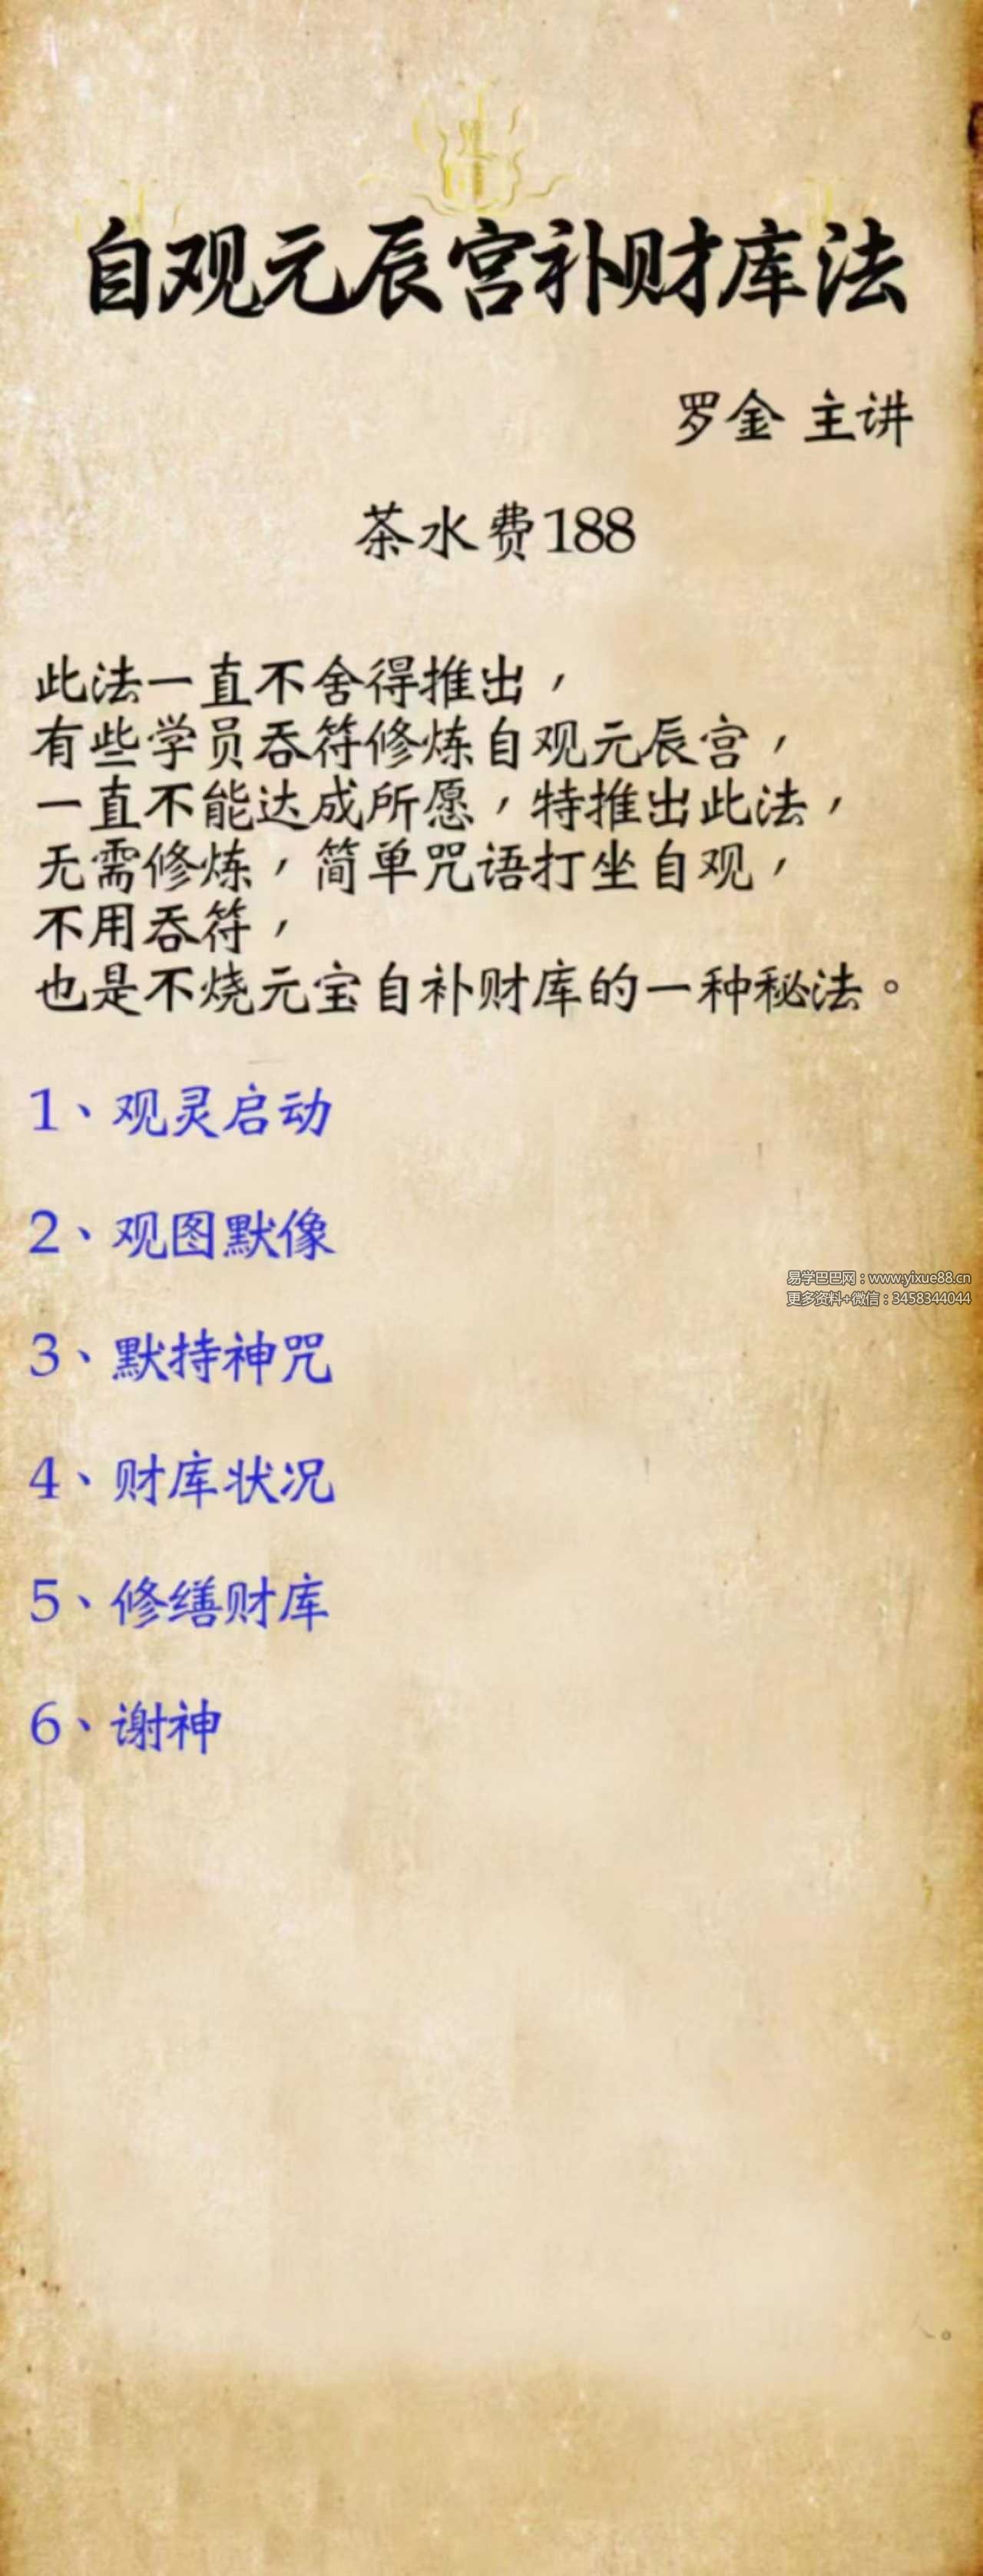 自观元辰宫补财库法
罗金 主讲
茶水费188
此法一直不舍得推出，
有些学员吞符修炼自观元辰宫，
一直不能达成所愿，特推出此法，
无需修炼，简单咒语打坐自观，
不用吞符，
也是不烧元宝自补财库的一种秘法。
1、观灵启动
2、观图默像
易学巴巴网：www.yixue88.cn
更多资料+微信：3458344044
3、默持神咒
4、财库状况
5、修缮财库
6、谢神